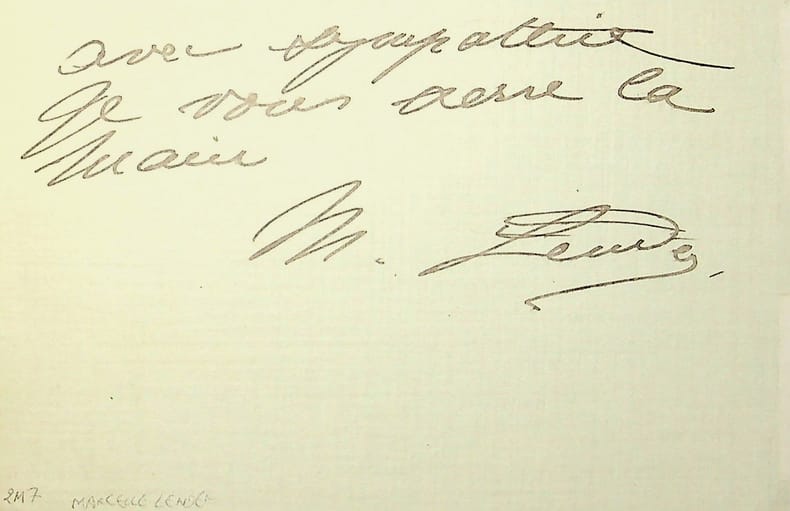 avec sympathie
Je vous serre la
main
M. Lender
2M7 MARCELLE LENDER